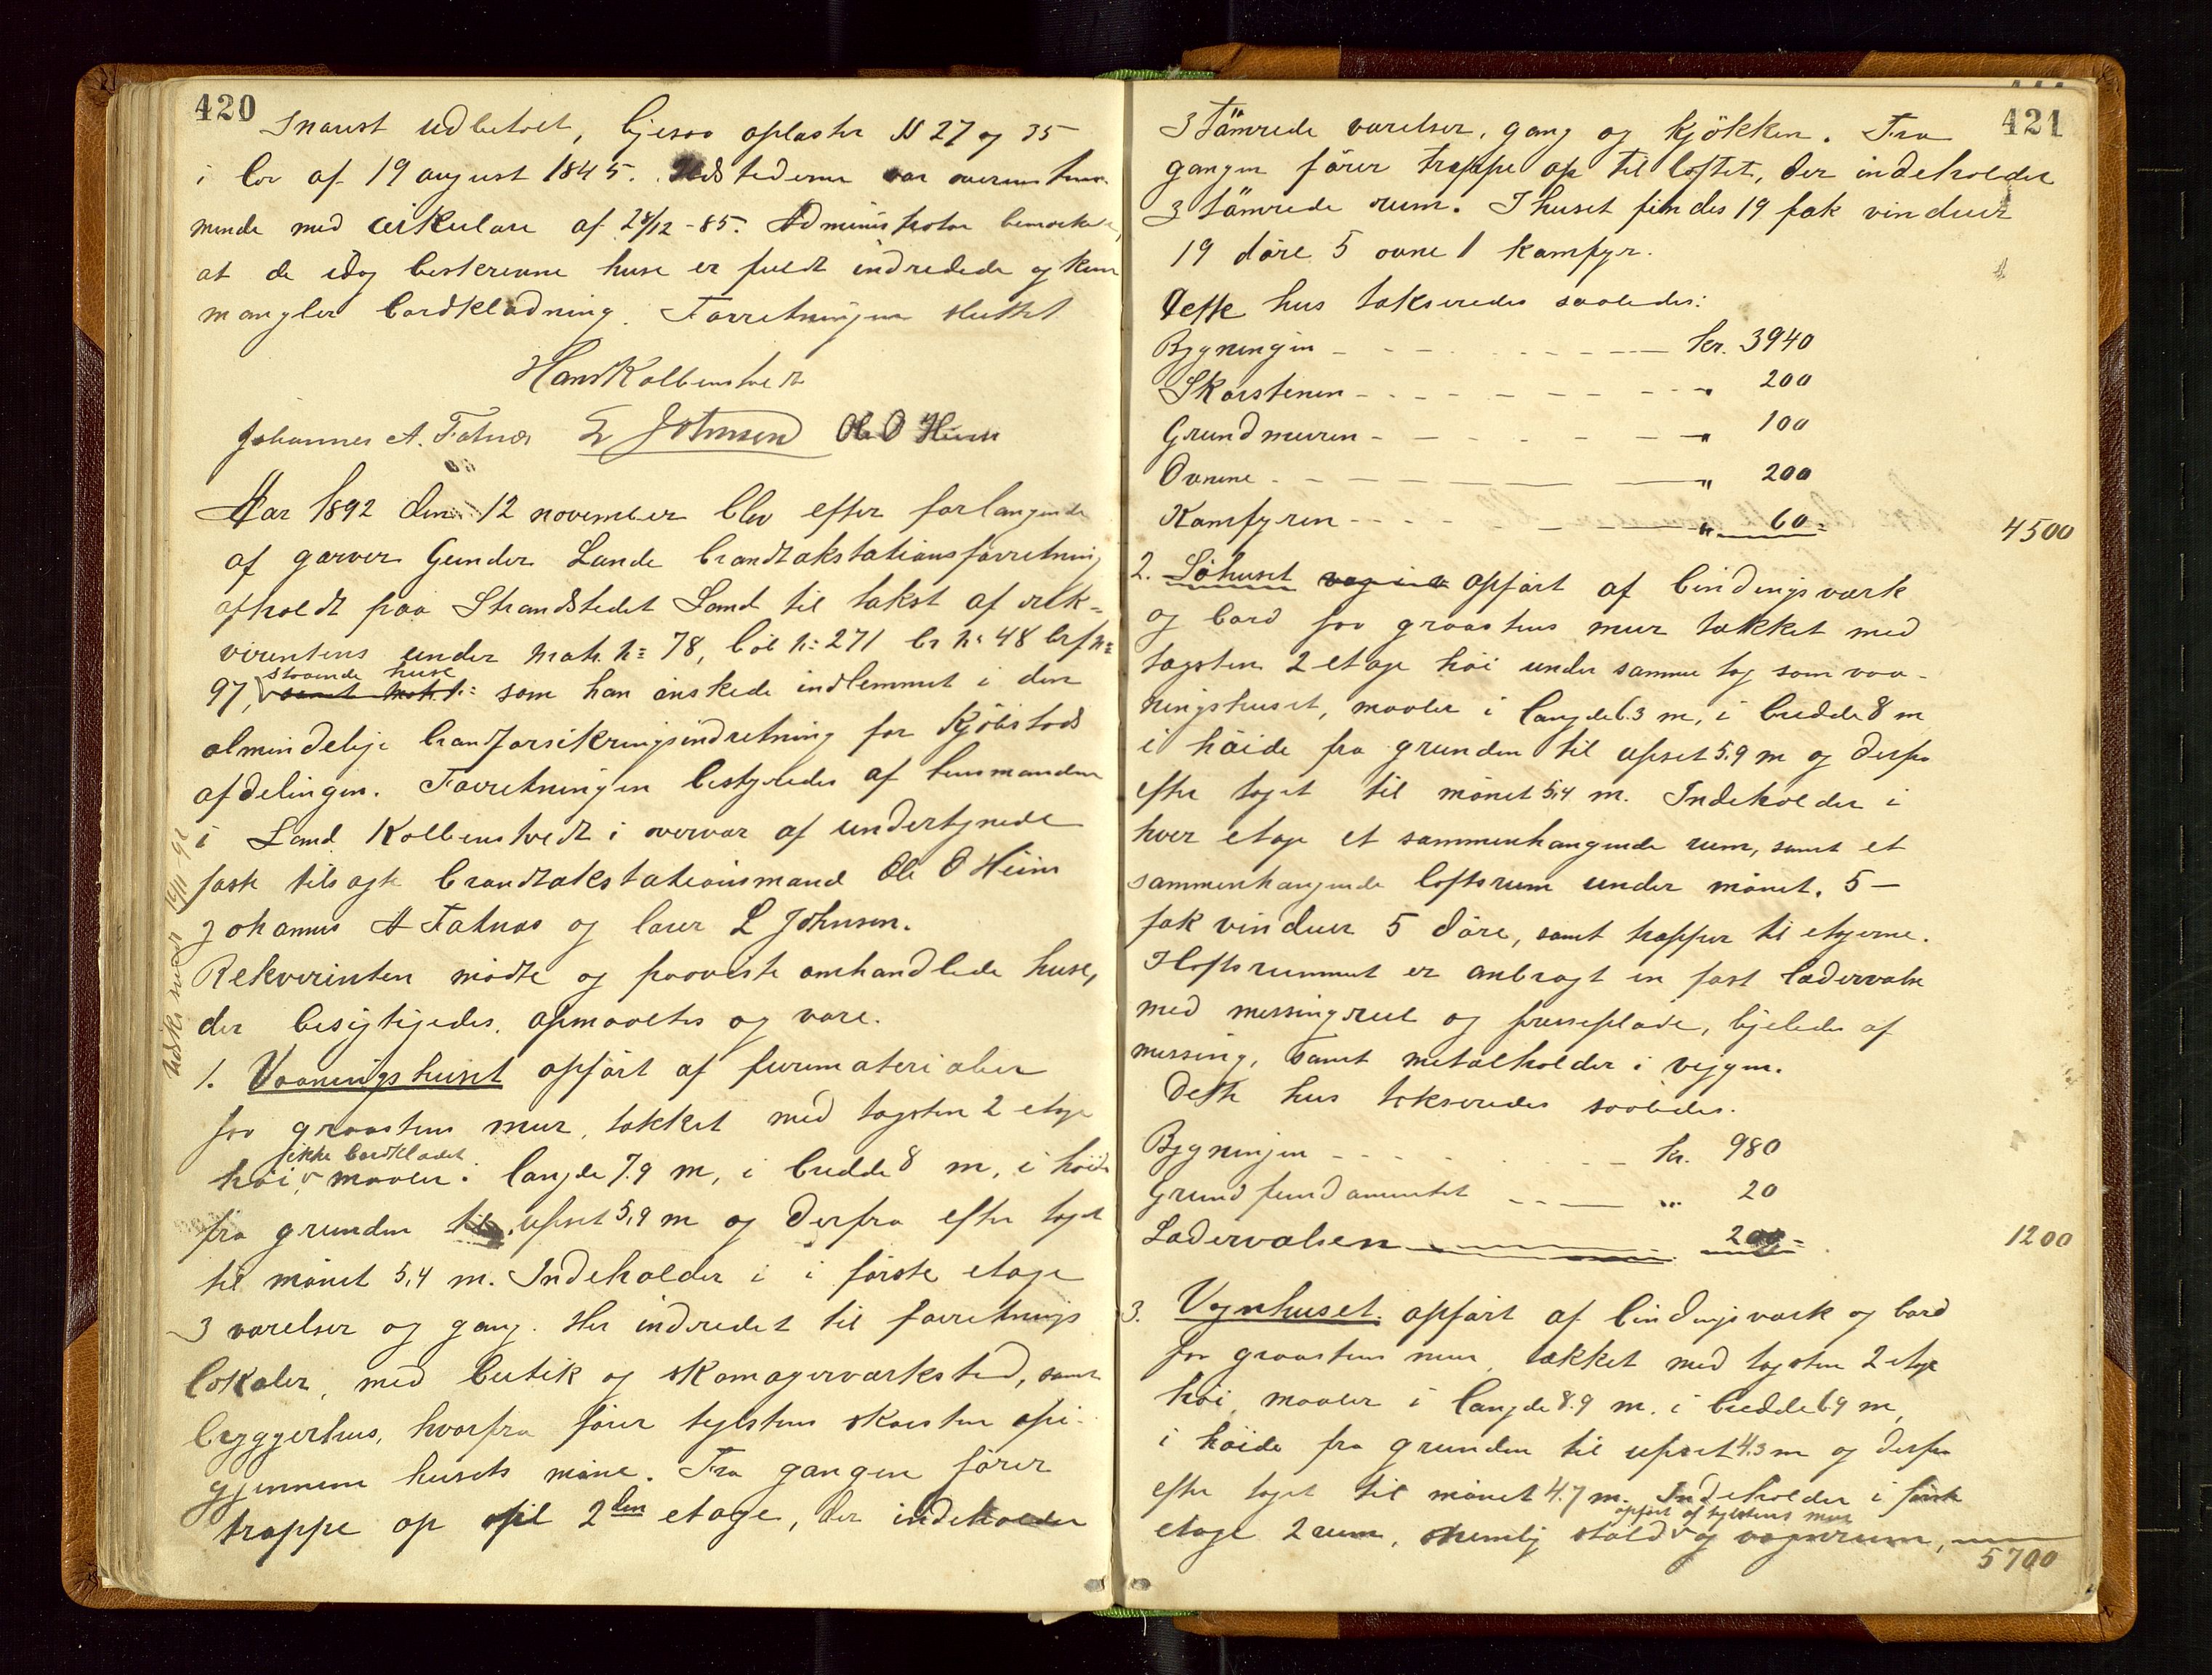 420
Snarest udbetalt, ligesaa oplæstes N 27 og 35
i lov af 19 august 1845. Ildstederne var overenstem-
mende med cirkulære af 28/12-85. Administrator bemærkede,
at de idag beskrevne huse er fuldt indredede og kun
mangler bordklædning. Forretningen sluttet
Hans Kolbenstvedt
Johannes A. Fatnæs L Johnsen Ole O Heim
Aar 1892 den 12 november blev efter forlangende
af garver Gunder Lande brandtakstationsforretning
afholdt paa Strandstedet Land til takst af rek-
virentens under Matr. n= 78, böl n= 271 br n= 48 brf n=
97, staaende huse som han önskede indlemmet i den
almindelige brandforsikringsindretning for Kjöbstads
afdelingen. Forretningen bestyredes af lensmanden
i Land Kolbenstvedt i overvær af undertegnede
faste tilsagte brandtakstationsmænd Ole O Heim
Johannes A Fatnæs og lærer L Johnsen.
Rekvirenten mödte og paaviste omhandlede huse,
der besigtigedes, opmaaltes og være.
1. Vaaningshuset opfört af furumaterialier
paa graastens mur, tækket med tagsten 2 etage
ikke bordklædet
höi, maaler i længde 7.9 m, i bredde 8 m, i höide
fra grunden til upset 5,9 m og derfra efter taget
til mönet 5,4 m. Indeholder i i förste etage
3 værelser og gang. Her indredet til forretnings
lokaler, med butik og skomagerværksted, samt
bryggerhus, hvorfra förer teglstens skorsten op i-
gjennem husets möne. Fra gangen förer
trappe op til 2den etage, der indeholder
421
3 tömrede værelser, gang og kjökken. Fra
gangen förer trappe op til loftet, der indeholder
3 tömrede rum. I huset findes 19 fak vinduer
19 döre 5 ovne 1 kamfyr.
Dette hus takseredes saaledes:
Bygningen kr. 3940
Skorstenen " 200
Grundmuren " 100
Ovnene " 200
Kamfyren " 60= 4500
2. Söhuset opfört af bindingsværk
og bord paa graastens mur tækket med
tagsten 2 etage höi under samme tag som vaa-
ningshuset, maaler i længde 6.3 m, i bredde 8 m
i höide fra grunden til upset 5,9 m og derfra
efter taget til mönet 5,4 m. Indeholder i
hver etage et sammenhængende rum, samt et
sammenhængende loftsrum under mönet. 5-
fak vinduer 5 döre, samt trapper til etagerne.
I loftsrummet er anbragt en fast lædervalse
med messingrul og presseplade, ligeledes af
messing, samt metalholder i vægen.
Dette hus takseredes saaledes.
Bygningen kr. 980
Grundfundamentet " 20
Lædervalsen 200= 1200
3. Vognhuset opfört af bindingsværk og bord
paa graastens mur, tækket med tagsten 2 etage
höi, maaler i længde 8.9 m. i bredde 6.9 m,
i höide fra grunden til upset 4.3 m og derfra
efter taget til mönet 4.7 m. Indeholder i förste
opfört af teglstens mur
etage 2 rum, nemlig stald og vognrum,
5700